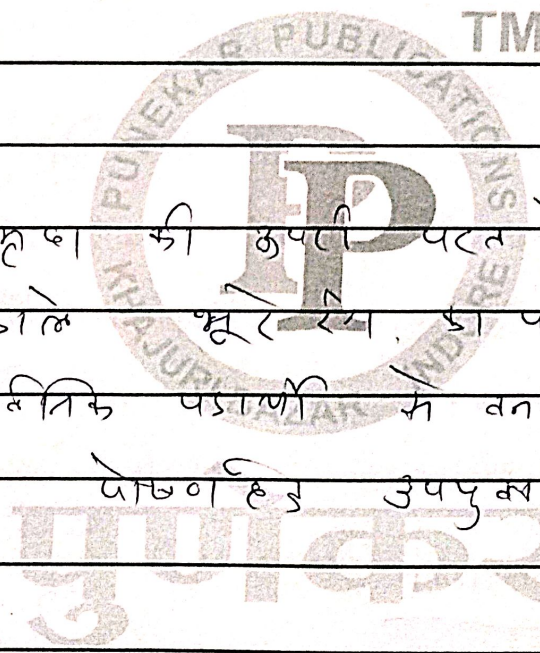 TM
PUNEKAR PUBLICATIONS
KHAJURI BAZAR INDORE
PP
मृदा की ऊपरी परत
काले भूरे रंग का प
र्बनिक पदार्थो से बन
पोषण हेतु उपयुक्त
पुणेकर